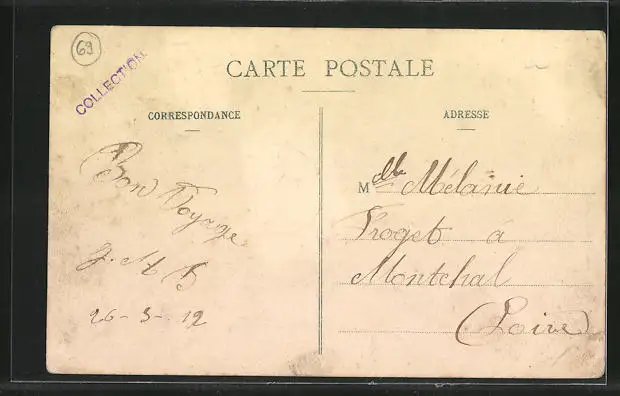 69
COLLECTION
CARTE POSTALE
CORRESPONDANCE
ADRESSE
Bon Voyage
J. M B
26-3-12
Mlle Mélanie
Proget à
Montchal
(Loire)